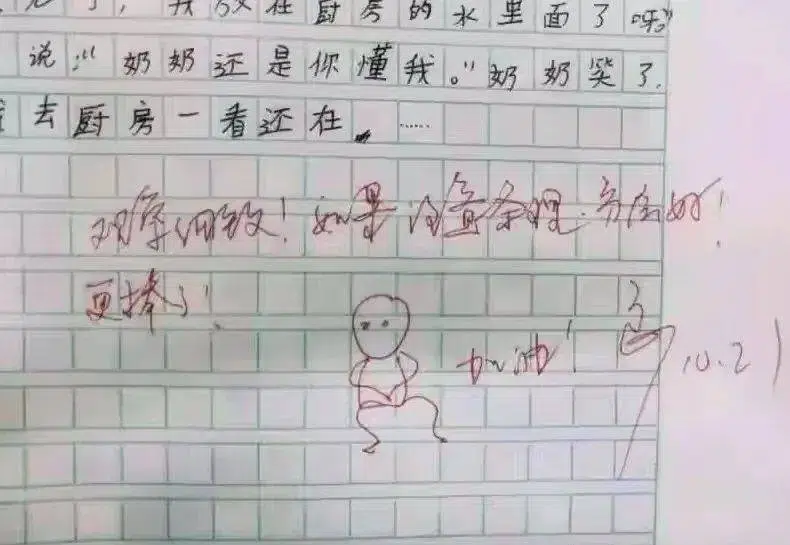 了，我放在厨房的水里面了呀”
说：“奶奶还是你懂我。”奶奶笑了.
去厨房一看还在。……
观察细致！如果注意条理，分层好！
更棒了！
加油！
10.21